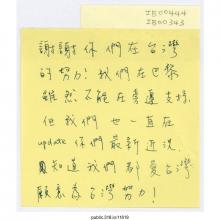 IE00444
IE00343
謝謝你們在台灣
的努力！我們在巴黎
雖然不能在旁邊支持，
但我們也一直在
update 你們最新近況。
知道我們都愛台灣
願意為台灣努力！
public.318.io/11819